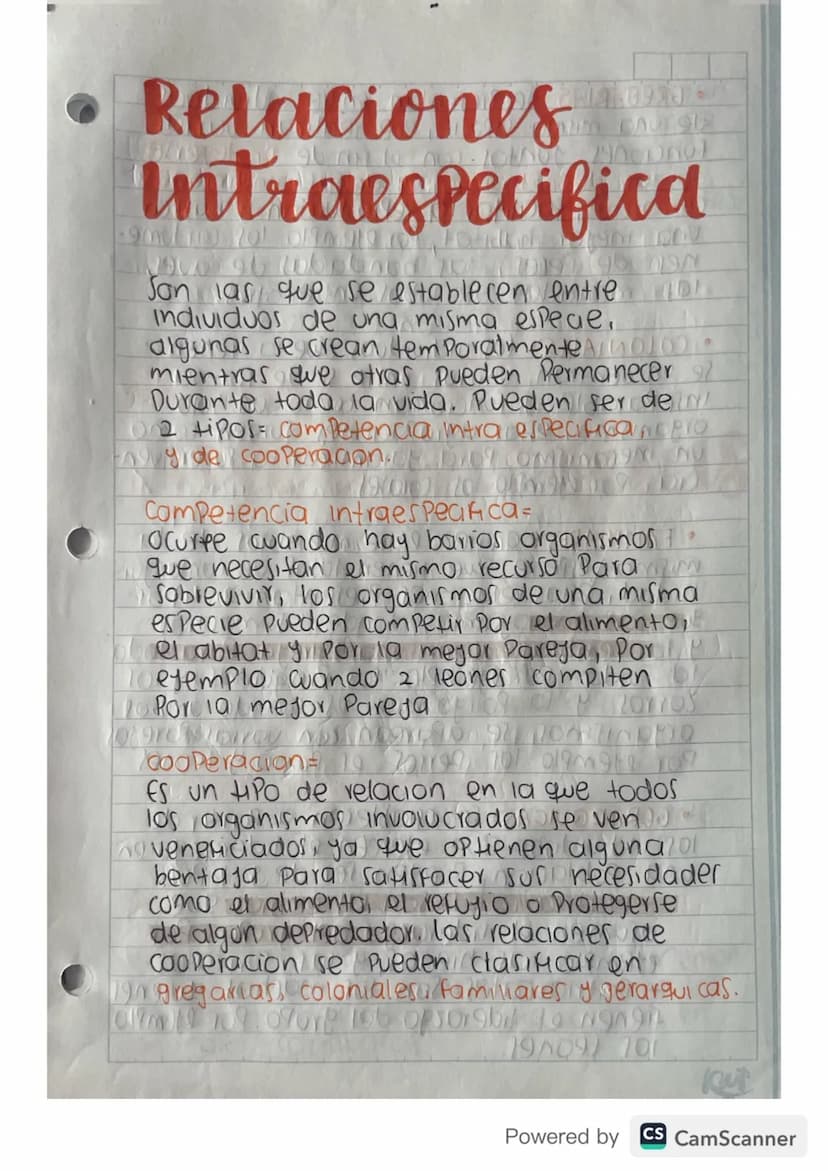 Relaciones
Intraespecifica
Son las que se establecen entre
individuos de una misma especie,
algunas se crean temporalmente
mientras que otras pueden Permanecer
Durante toda la vida. Pueden ser de
2 tipos= competencia intra especifica
y de cooperacion.
Competencia intraespecifica=
Ocurre cuando hay barios organismos
que necesitan el mismo recurso para
sobrevivir, los organismos de una misma
especie pueden competir por el alimento,
el abitat y por la mejor Pareja, Por
ejemplo cuando 2 leones compiten
Por la mejor Pareja
cooperacion=
Es un tipo de relacion en la que todos
los organismos involucrados se ven
veneficiados, ya que optienen alguna
bentaja para satisfacer sus necesidades
como el alimento, el refugio o Protegerse
de algun depredador. las relaciones de
cooperacion se pueden clasificar en
gregarias, coloniales, familiares y gerarquicas.
Powered by CS CamScanner